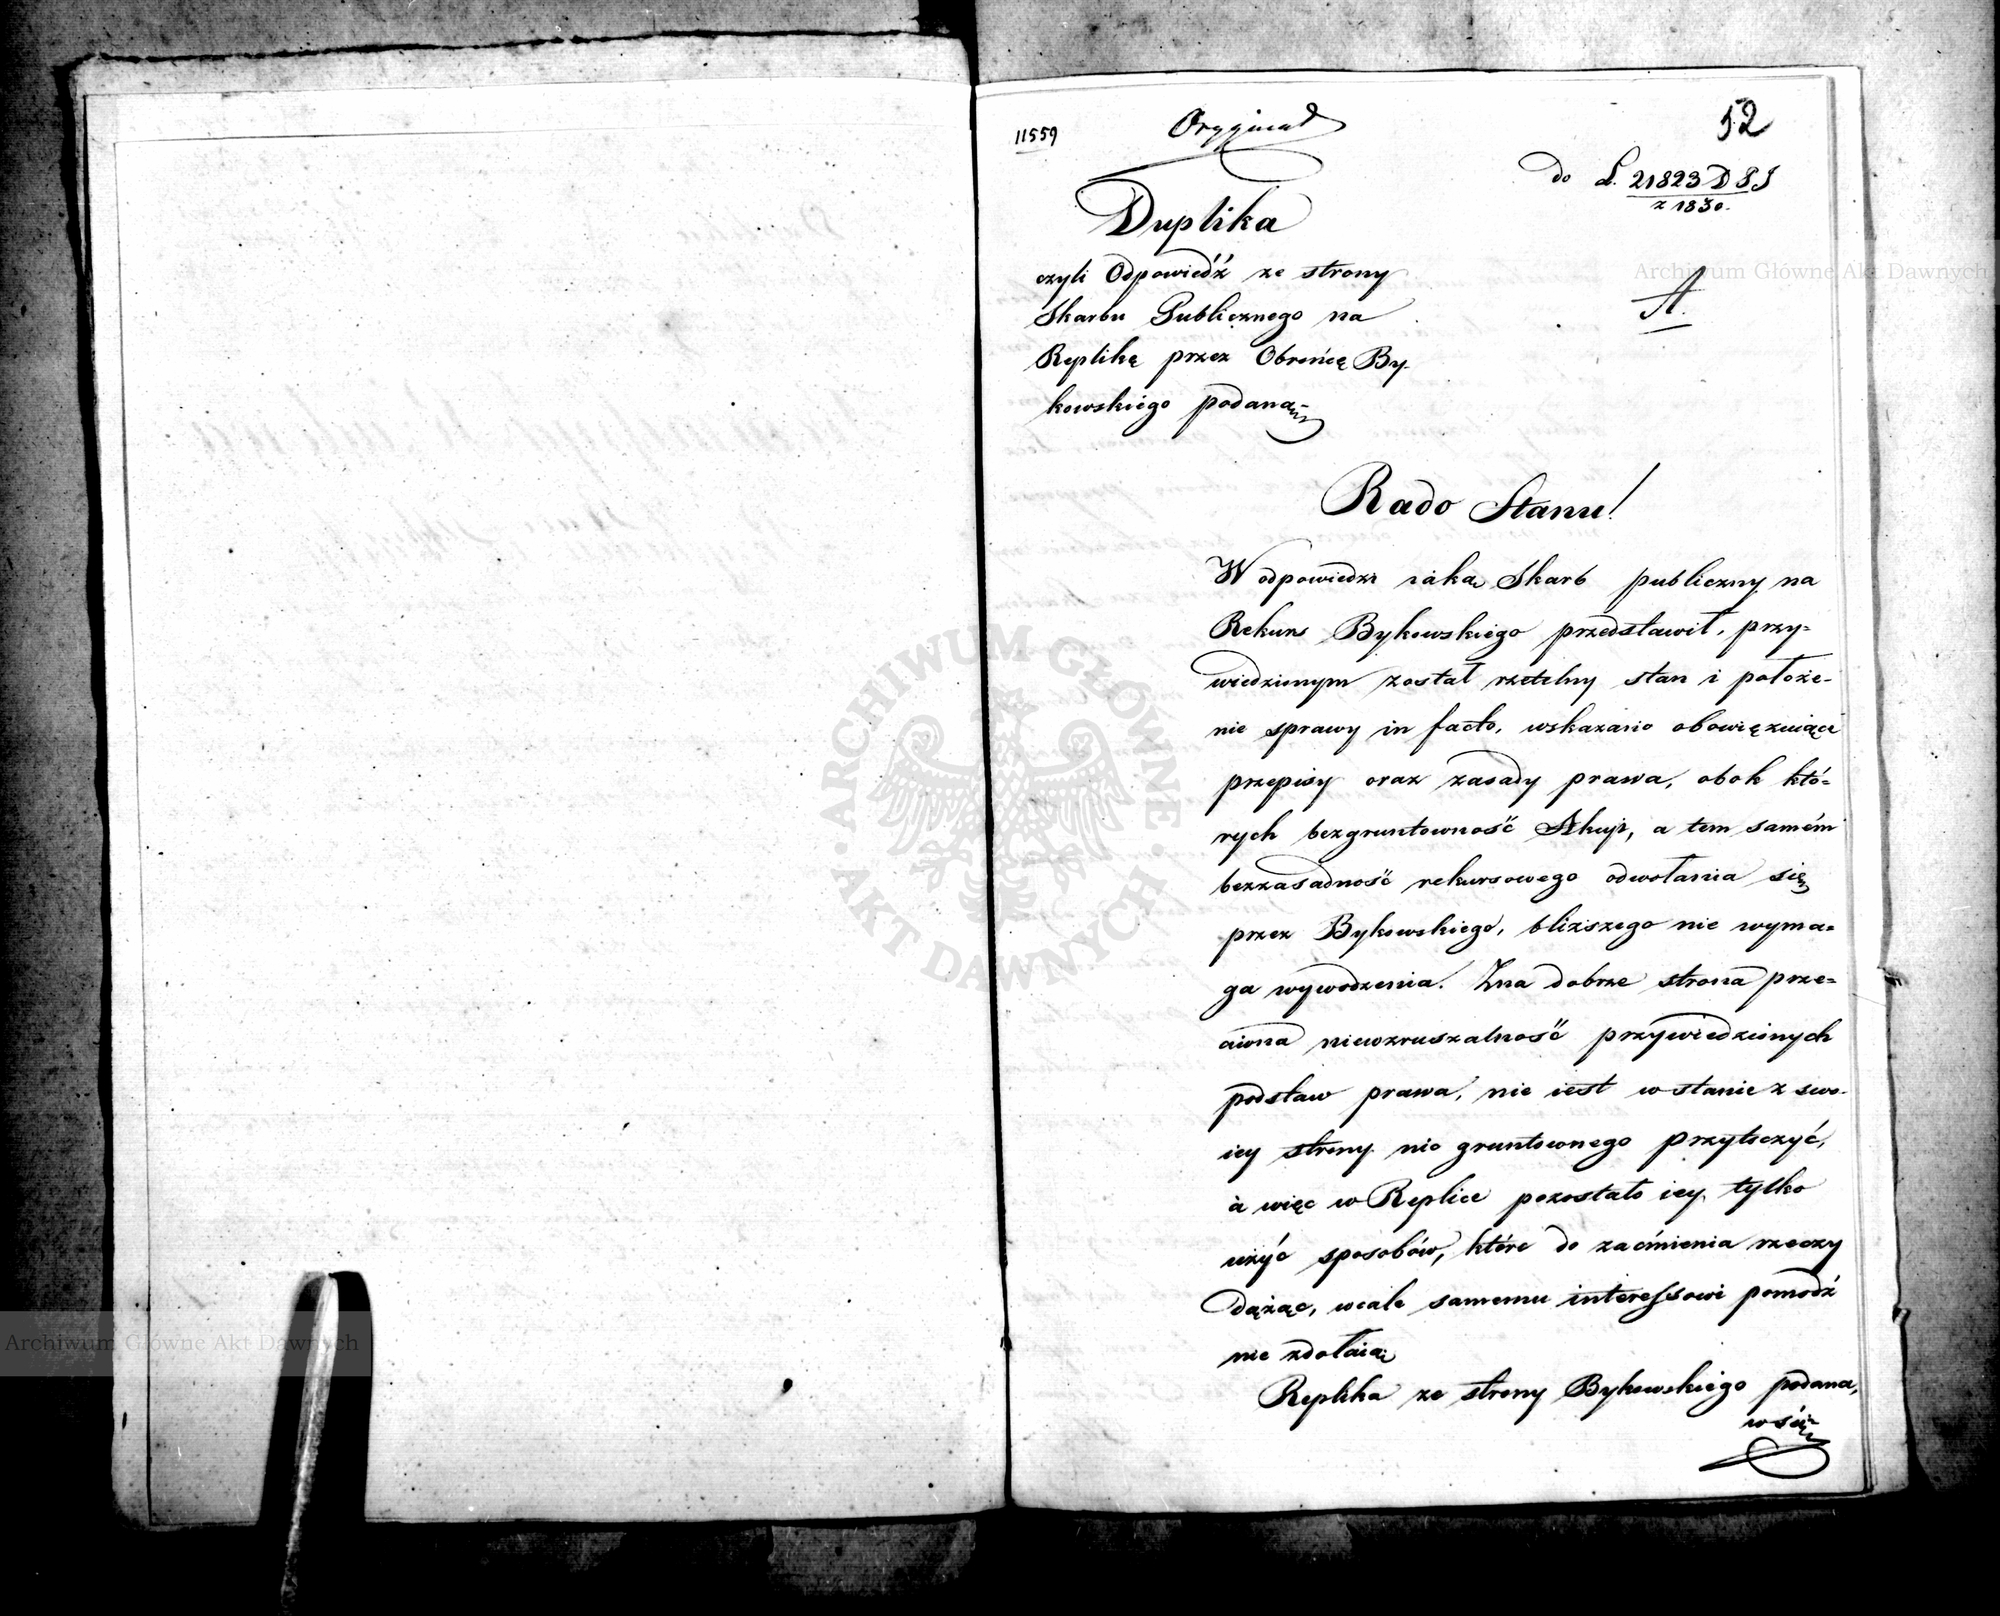 11559
Oryginał
52
do L. 21823 D P S
z 1830.
Duplika
czyli Odpowiedź ze strony
Skarbu Publicznego na
Replikę przez Obrońcę By-
kowskiego podaną
A.
Rado Stanu!
W odpowiedzi iaką Skarb publiczny na
Rekurs Bykowskiego przedstawił, przy=
wiedzionym został rzetelny stan i położe-
nie sprawy in facto, wskazano obowięzuiące
przepisy oraz zasady prawa, obok któ=
rych bezgruntowność Skargi, a tem samém
bezzasadność rekursowego odwołania się
przez Bykowskiego, bliższego nie wyma=
ga wywodzenia. Zna dobrze strona prze=
ciwna niewzruszalność przywiedzionych
podstaw prawa, nie iest w stanie z swo-
iey strony nic gruntownego przytoczyć,
a więc w Replice pozostało iey tylko
użyć sposobów, które do zaćmienia rzeczy
dążąc, wcale samemu interessowi pomódz
nie zdołaią
Replika ze strony Bykowskiego podana,
wście
Archiwum Główne Akt Dawnych
Archiwum Główne Akt Dawnych
ARCHIWUM GŁÓWNE AKT DAWNYCH